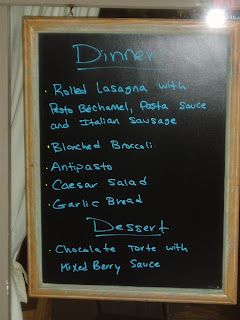 Dinner
· Rolled Lasagna with
Pesto Béchamel, Pasta Sauce
and Italian Sausage
· Blanched Broccoli
· Antipasto
· Caesar Salad
· Garlic Bread
Dessert
· Chocolate Torte with
Mixed Berry Sauce